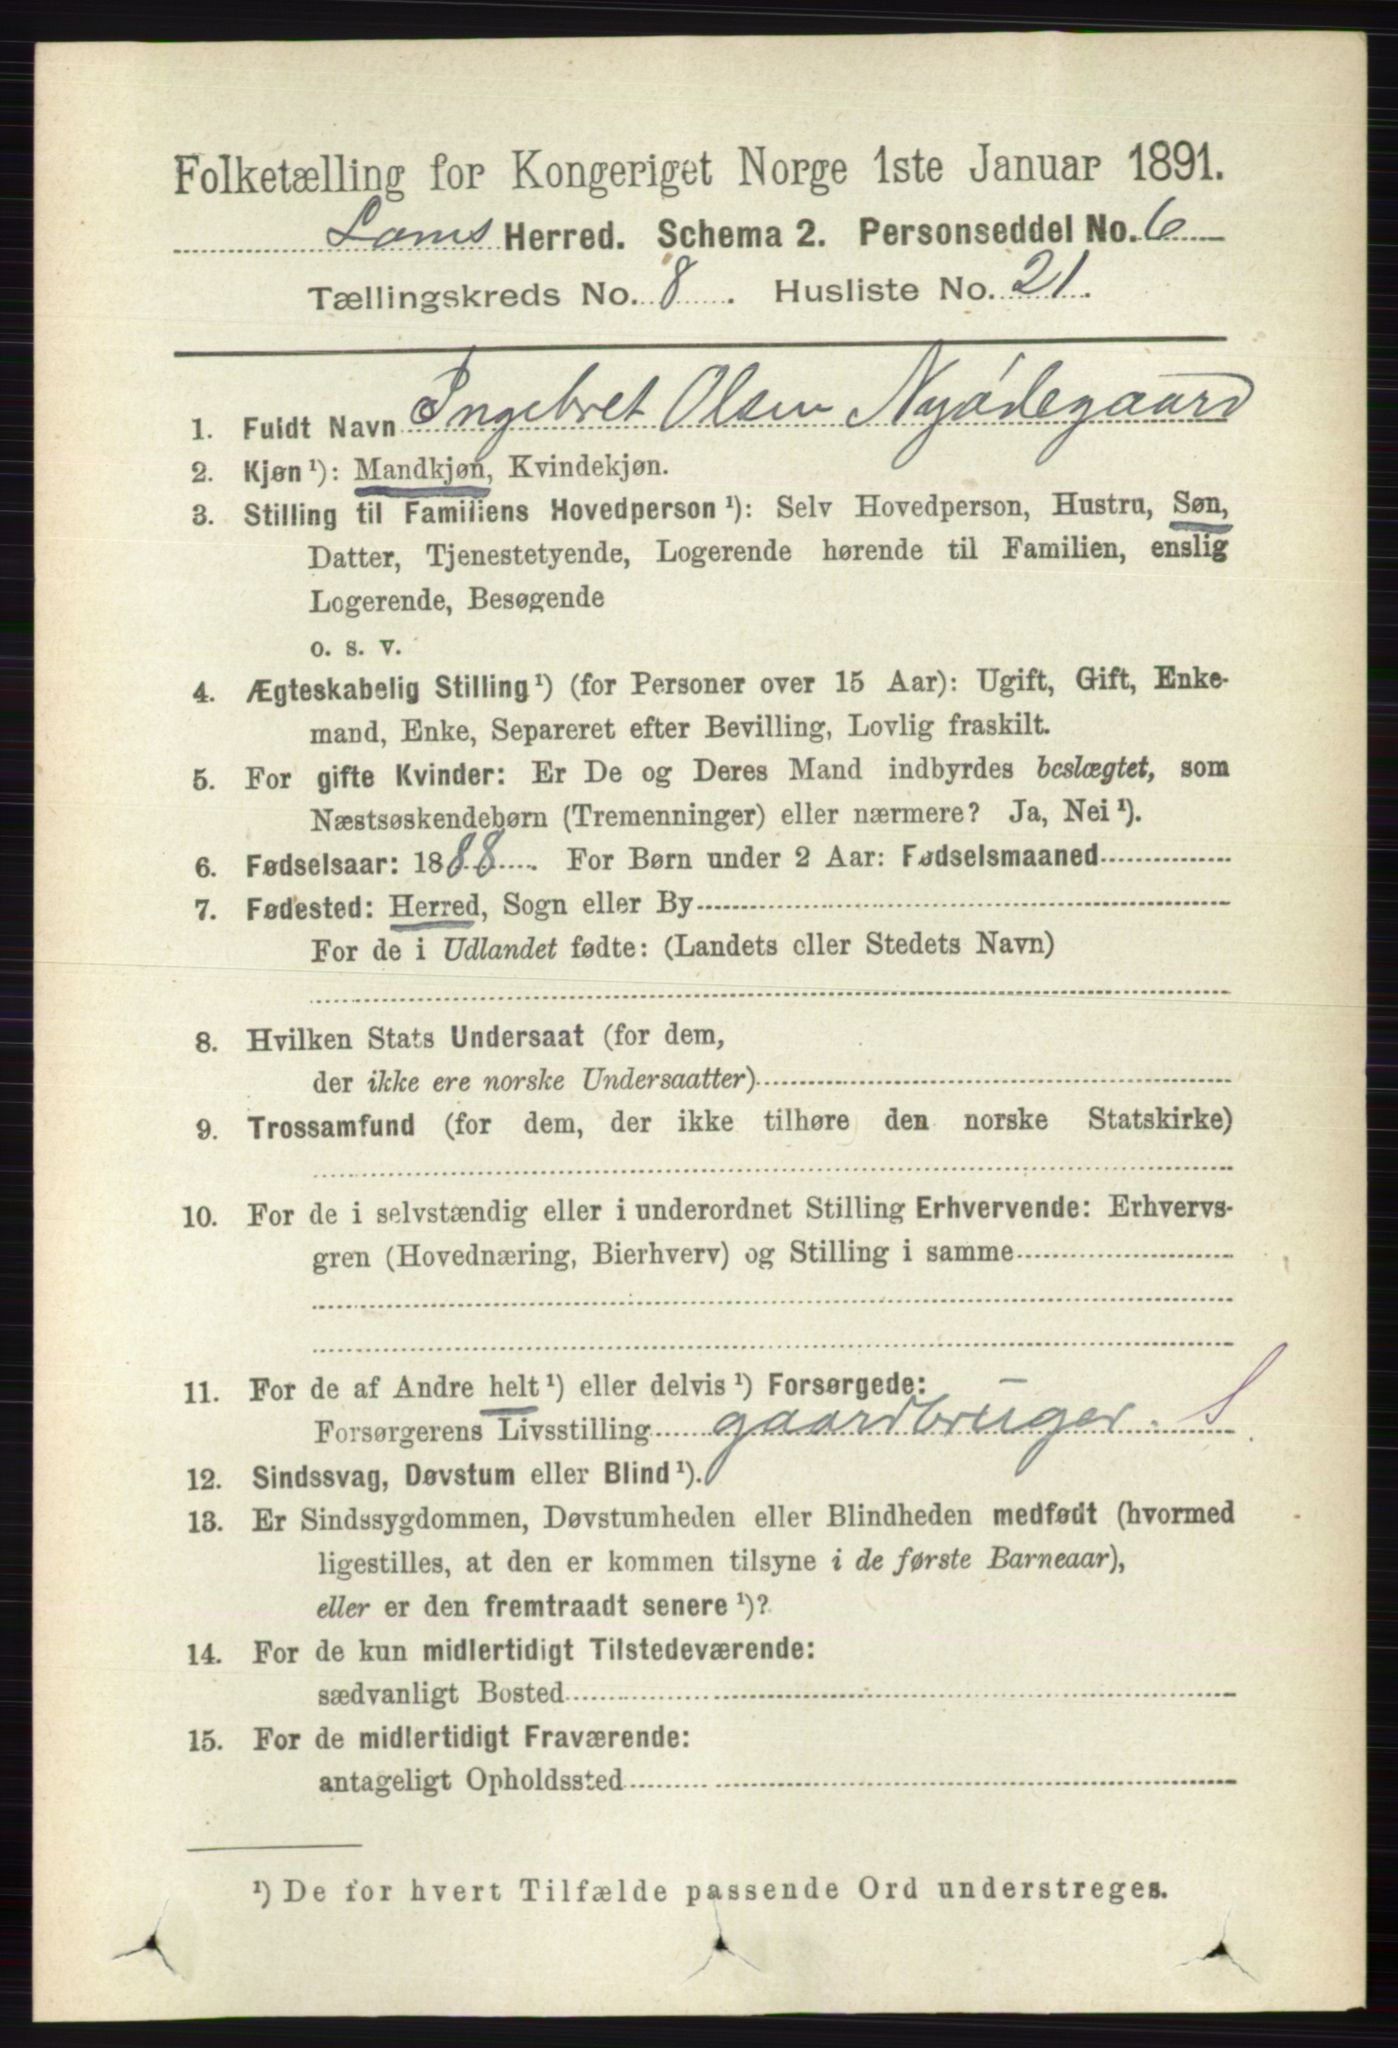 Folketælling for Kongeriget Norge 1ste Januar 1891.
Loms Herred. Schema 2. Personseddel No. 6
Tællingskreds No. 8. Husliste No. 21.
1. Fuldt Navn Ingebret Olsen Nyødegaard
2. Kjøn¹): Mandkjøn, Kvindekjøn.
3. Stilling til Familiens Hovedperson¹): Selv Hovedperson, Hustru, Søn,
Datter, Tjenestetyende, Logerende hørende til Familien, enslig
Logerende, Besøgende
o. s. v.
4. Ægteskabelig Stilling¹) (for Personer over 15 Aar): Ugift, Gift, Enke-
mand, Enke, Separeret efter Bevilling, Lovlig fraskilt.
5. For gifte Kvinder: Er De og Deres Mand indbyrdes beslægtet, som
Næstsøskendebørn (Tremenninger) eller nærmere? Ja, Nei¹).
6. Fødselsaar: 1888. For Børn under 2 Aar: Fødselsmaaned
7. Fødested: Herred, Sogn eller By
For de i Udlandet fødte: (Landets eller Stedets Navn)
8. Hvilken Stats Undersaat (for dem,
der ikke ere norske Undersaatter)
9. Trossamfund (for dem, der ikke tilhøre den norske Statskirke)
10. For de i selvstændig eller i underordnet Stilling Erhvervende: Erhvervs-
gren (Hovednæring, Bierhverv) og Stilling i samme
11. For de af Andre helt¹) eller delvis¹) Forsørgede:
Forsørgerens Livsstilling gaardbruger. S
12. Sindssvag, Døvstum eller Blind¹).
13. Er Sindssygdommen, Døvstumheden eller Blindheden medfødt (hvormed
ligestilles, at den er kommen tilsyne i de første Barneaar),
eller er den fremtraadt senere¹)?
14. For de kun midlertidigt Tilstedeværende:
sædvanligt Bosted
15. For de midlertidigt Fraværende:
antageligt Opholdssted
¹) De for hvert Tilfælde passende Ord understreges.